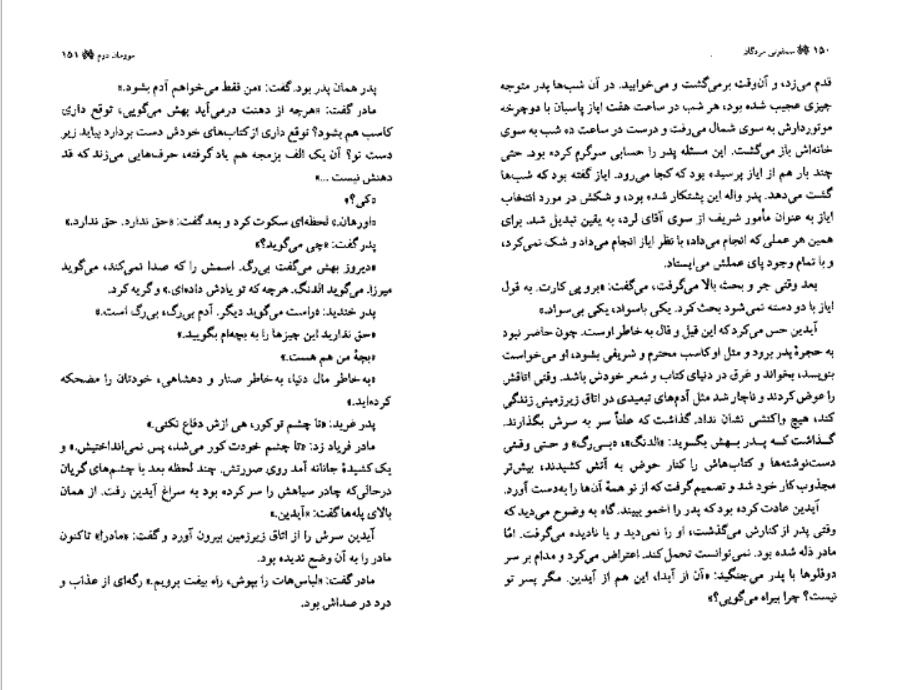 ۱۵۰ سمفونی مردگان
قدم می‌زد، و آن‌وقت برمی‌گشت و می‌خوابید. در آن شب‌ها پدر متوجه
چیزی عجیب شده بود، هر شب در ساعت هفت ایاز پاسبان با دوچرخه
موتوردارش به سوی شمال می‌رفت و درست در ساعت ده شب به سوی
خانه‌اش باز می‌گشت. این مسئله پدر را حسابی سرگرم کرده بود. حتی
چند بار هم از ایاز پرسیده بود که کجا می‌رود. ایاز گفته بود که شب‌ها
گشت می‌دهد. پدر واله این پشتکار شده بود، و شکش در مورد انتخاب
ایاز به عنوان مأمور شریف از سوی آقای لرد، به یقین تبدیل شد. برای
همین هر عملی که انجام می‌داد، با نظر ایاز انجام می‌داد و شک نمی‌کرد،
و با تمام وجود پای عملش می‌ایستاد.
بعد وقتی جر و بحث بالا می‌گرفت، می‌گفت: «برو پی کارت. به قول
ایاز با دو دسته نمی‌شود بحث کرد. یکی باسواد، یکی بی‌سواد.»
آیدین حس می‌کرد که این قیل و قال به خاطر اوست. چون حاضر نبود
به حجرهٔ پدر برود و مثل او کاسب محترم و شریفی بشود، او می‌خواست
بنویسد، بخواند و غرق در دنیای کتاب و شعر خودش باشد. وقتی اتاقش
را عوض کردند و ناچار شد مثل آدم‌های تبعیدی در اتاق زیرزمینی زندگی
کند، هیچ واکنشی نشان نداد. گذاشت که علناً سر به سرش بگذارند.
گذاشت کـه پـدر بـهش بگـوید: «الدنگ»، «بـی‌رگ» و حـتی وقـتی
دست‌نوشته‌ها و کتاب‌هاش را کنار حوض به آتش کشیدند، بیش‌تر
مجذوب کار خود شد و تصمیم گرفت که از نو همهٔ آن‌ها را به‌دست آورد.
آیدین عادت کرده بود که پدر را اخمو ببیند. گاه به وضوح می‌دید که
وقتی پدر از کنارش می‌گذشت، او را نمی‌دید و یا نادیده می‌گرفت. امّا
مادر ذله شده بود. نمی‌توانست تحمل کند. اعتراض می‌کرد و مدام بر سر
دوقلوها با پدر می‌جنگید: «آن از آیدا، این هم از آیدین. مگر پسر تو
نیست؟ چرا بیراه می‌گویی؟»
موومان دوم ۱۵۱
پدر همان پدر بود. گفت: «من فقط می‌خواهم آدم بشود.»
مادر گفت: «هرچه از دهنت درمی‌آید بهش می‌گویی، توقع داری
کاسب هم بشود؟ توقع داری از کتاب‌های خودش دست بردارد بیاید زیر
دست تو؟ آن یک الف بزمجه هم یاد گرفته، حرف‌هایی می‌زند که قد
دهنش نیست ...»
«کی؟»
«اورهان.» لحظه‌ای سکوت کرد و بعد گفت: «حق ندارد. حق ندارد.»
پدر گفت: «چی می‌گوید؟»
«دیروز بهش می‌گفت بی‌رگ. اسمش را که صدا نمی‌کند، می‌گوید
میرزا. می‌گوید الدنگ. هرچه که تو یادش داده‌ای.» و گریه کرد.
پدر خندید: «راست می‌گوید دیگر. آدم بی‌رگ، بی‌رگ است.»
«حق ندارید این چیزها را به بچه‌ام بگویید.»
«بچهٔ من هم هست.»
«به خاطر مال دنیا، به خاطر صنار و دهشاهی، خودتان را مضحکه
کرده‌اید.»
پدر غرید: «تا چشم تو کور، هی ازش دفاع نکنی.»
مادر فریاد زد: «تا چشم خودت کور می‌شد، پس نمی‌انداختیش.» و
یک کشیدهٔ جانانه آمد روی صورتش. چند لحظه بعد با چشم‌های گریان
درحالی‌که چادر سیاهش را سر کرده بود به سراغ آیدین رفت. از همان
بالای پله‌ها گفت: «آیدین.»
آیدین سرش را از اتاق زیرزمین بیرون آورد و گفت: «مادر!» تاکنون
مادر را به آن وضع ندیده بود.
مادر گفت: «لباس‌هات را بپوش، راه بیفت برویم.» رگه‌ای از عذاب و
درد در صداش بود.